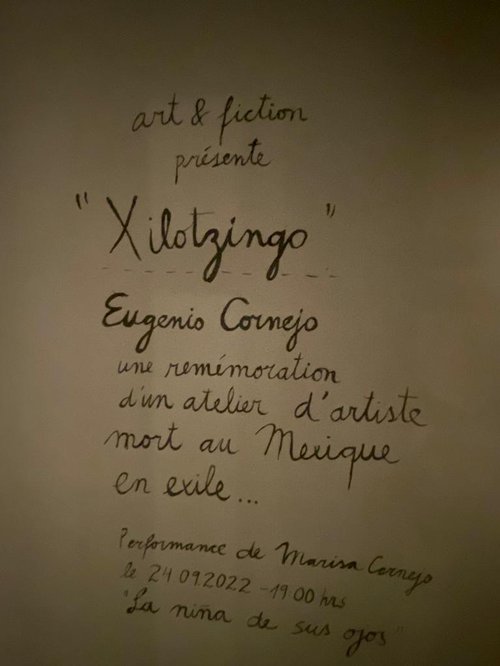 art & fiction
présente
"Xilotzingo"
Eugenio Cornejo
une remémoration
d'un atelier d'artiste
mort au Mexique
en exile...
Performance de Marisa Cornejo
le 24.09.2022 - 19.00 hrs
"La niña de sus ojos"